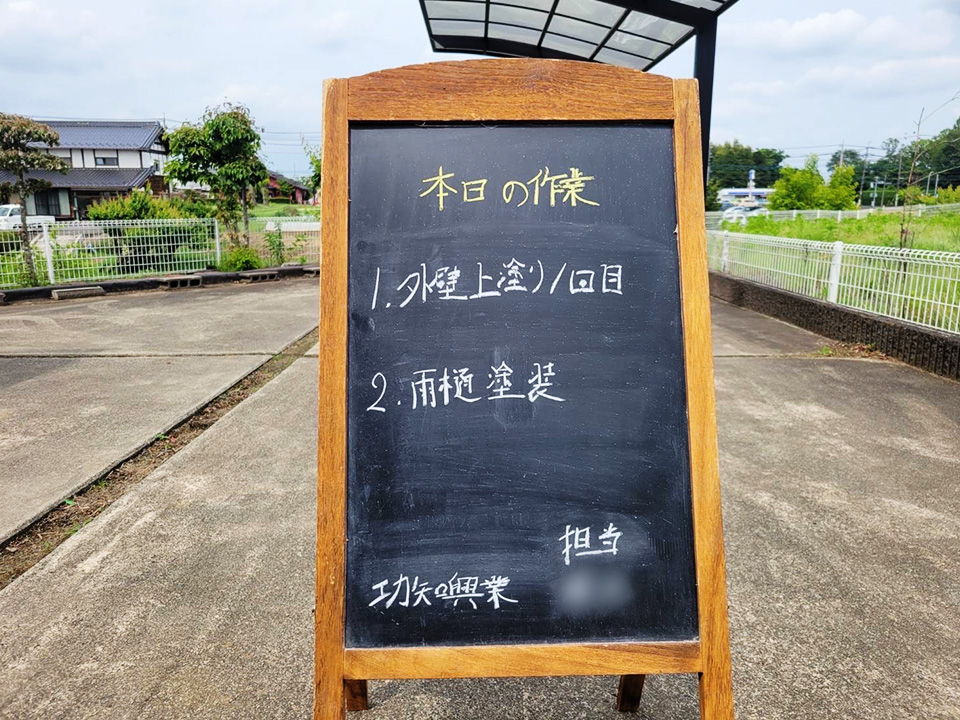 本日の作業
1.外壁上塗り1回目
2.雨樋塗装
担当
功矢興業